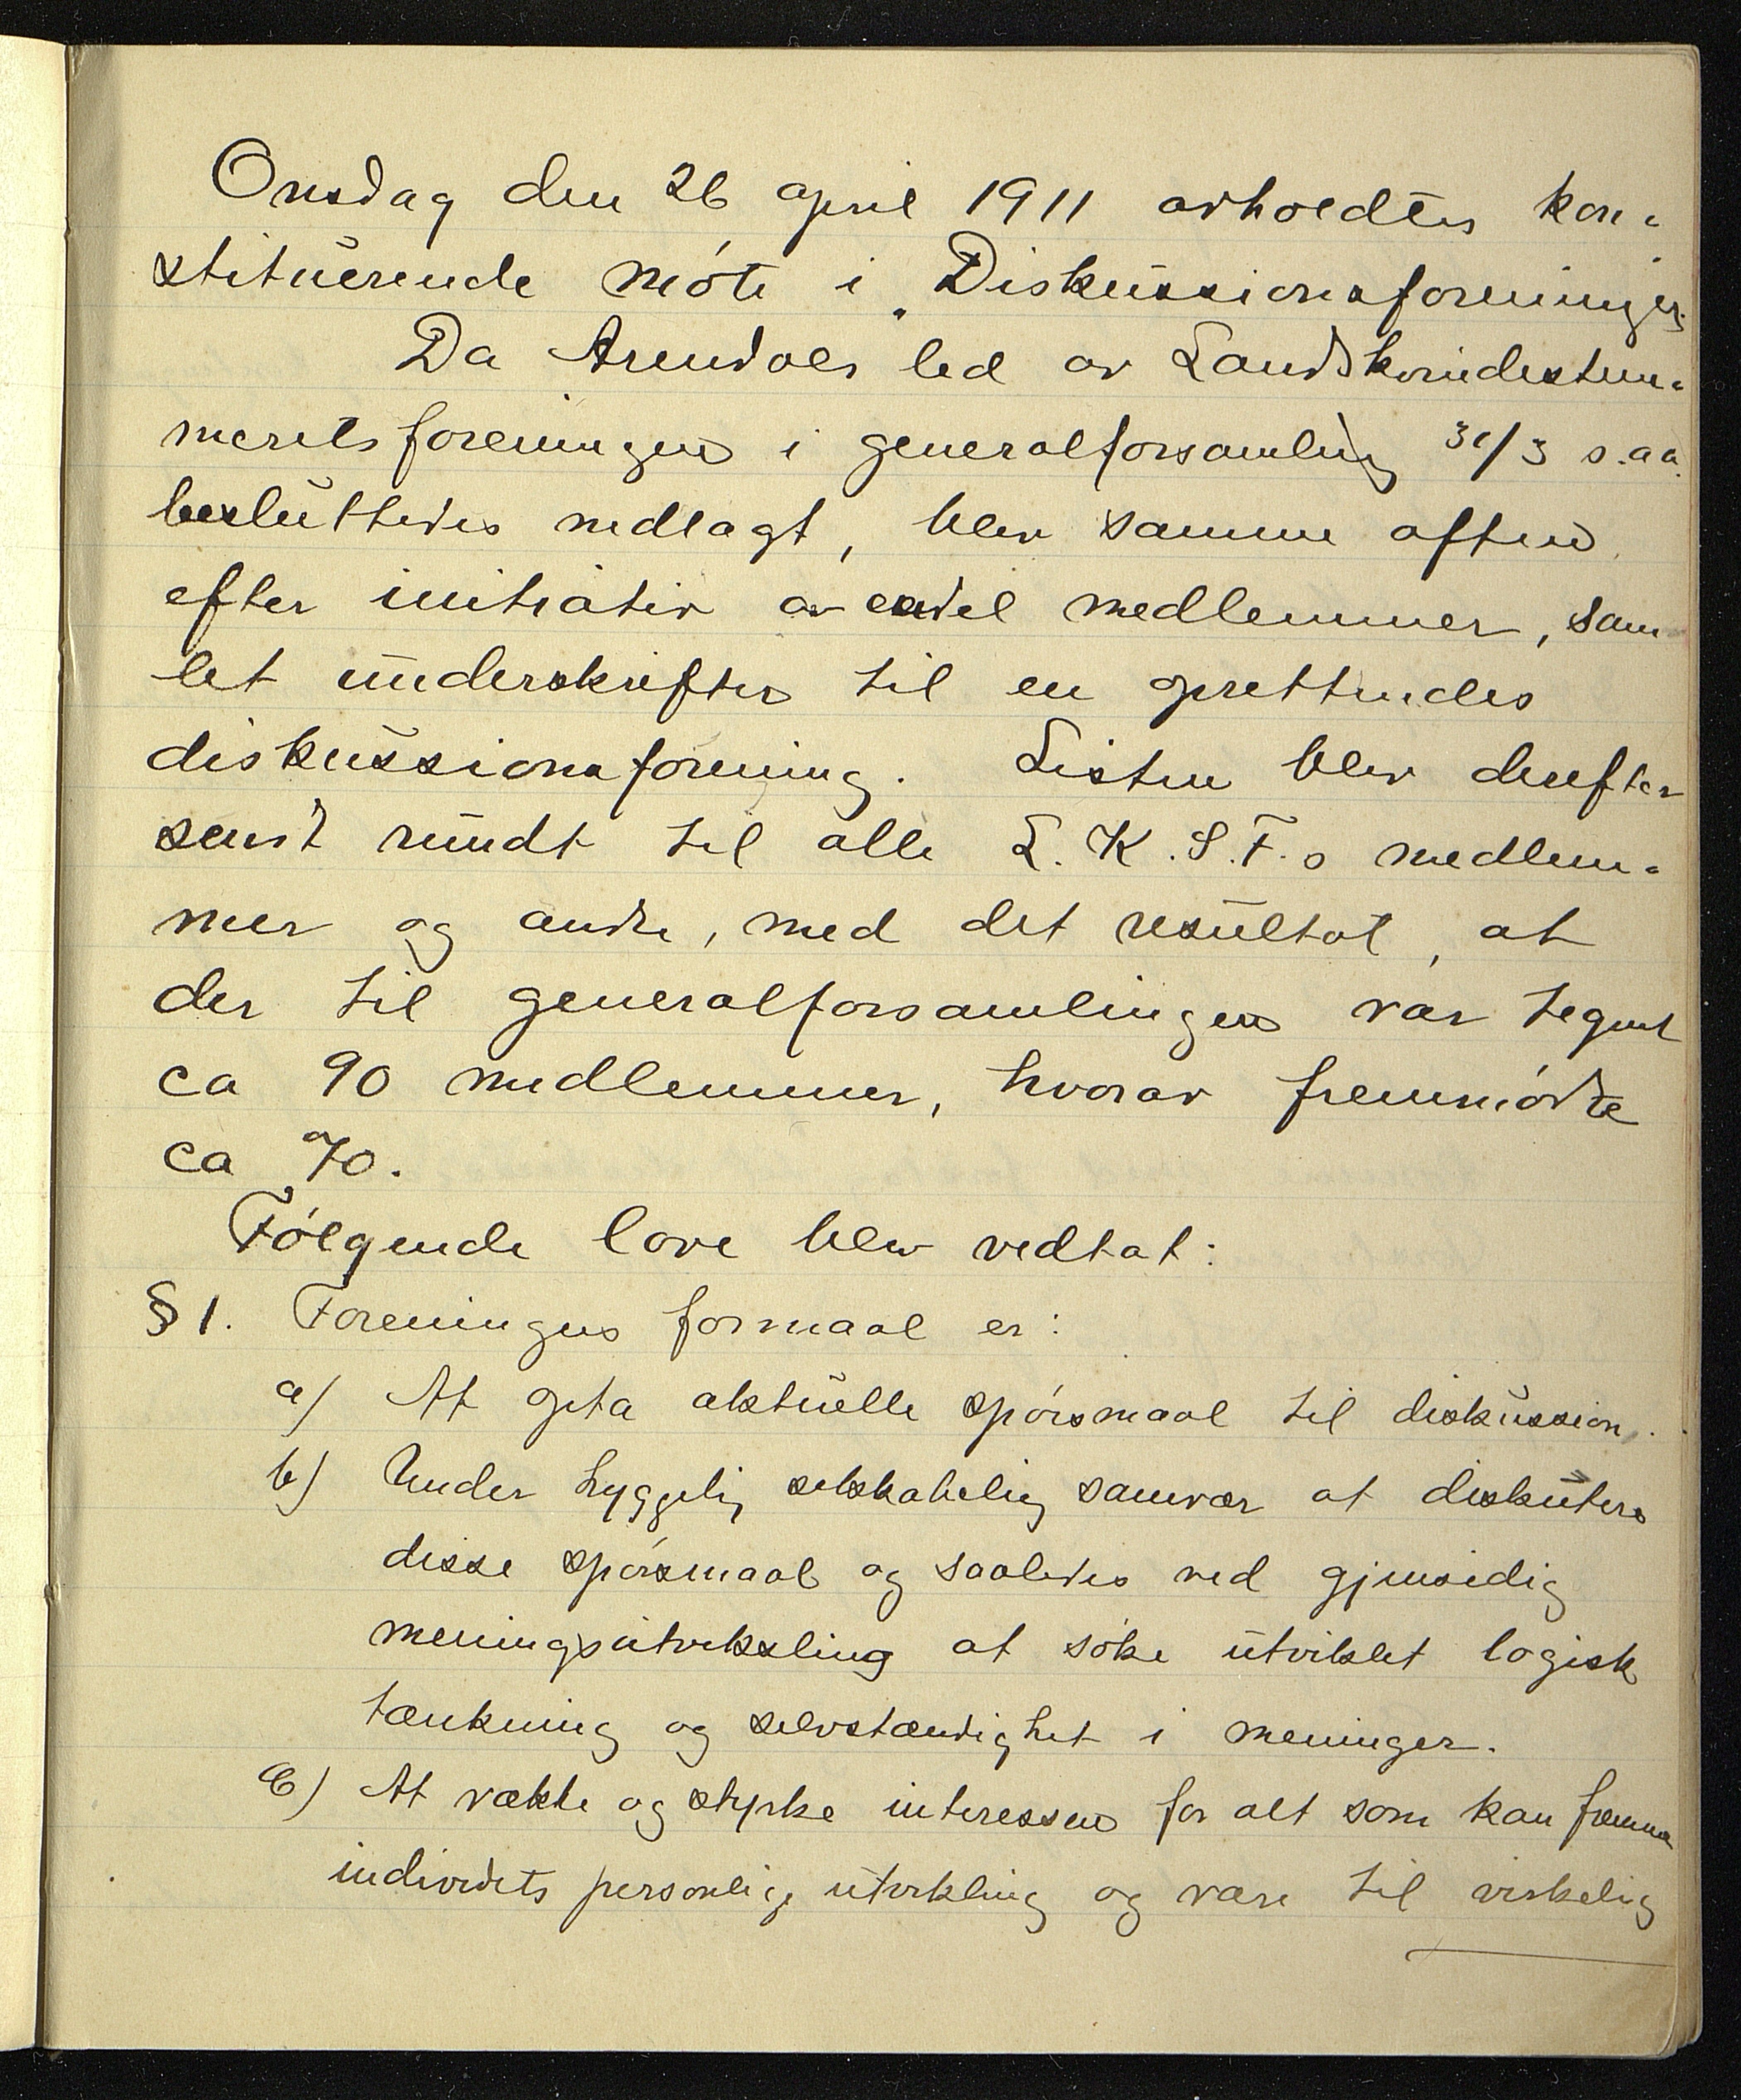 Onsdag den 26 april 1911 avholdtes kon-
stituerende møte i „Diskussionsforeningen".
Da Arendals led av Landskvindestem-
meretsforeningen i generalforsamling 31/3 s.aa.
besluttedes nedlagt, blev samme aften
efter initiativ av endel medlemmer, sam
let underskrifter til en oprettendes
diskussionsforening. Listen blev derefter
sendt rundt til alle L.K.S.F.s medlem-
mer og andre, med det resultat, at
der til generalforsamlingen var tegnet
ca 90 medlemmer, hvorav fremmødte
ca 70.
Følgende love blev vedtat:
§ 1. Foreningens formaal er:
a) At opta aktuelle spørsmaal til diskussion.
b) Under hyggelig selskabelig samvær at diskutere
disse spørsmaal og saaledes ved gjensidig
meningsutveksling at søke utviklet logisk
tænkning og selvstændighet i meninger.
c) At vække og styrke interessen for alt som kan fremme
individets personlige utvikling og være til virkelig